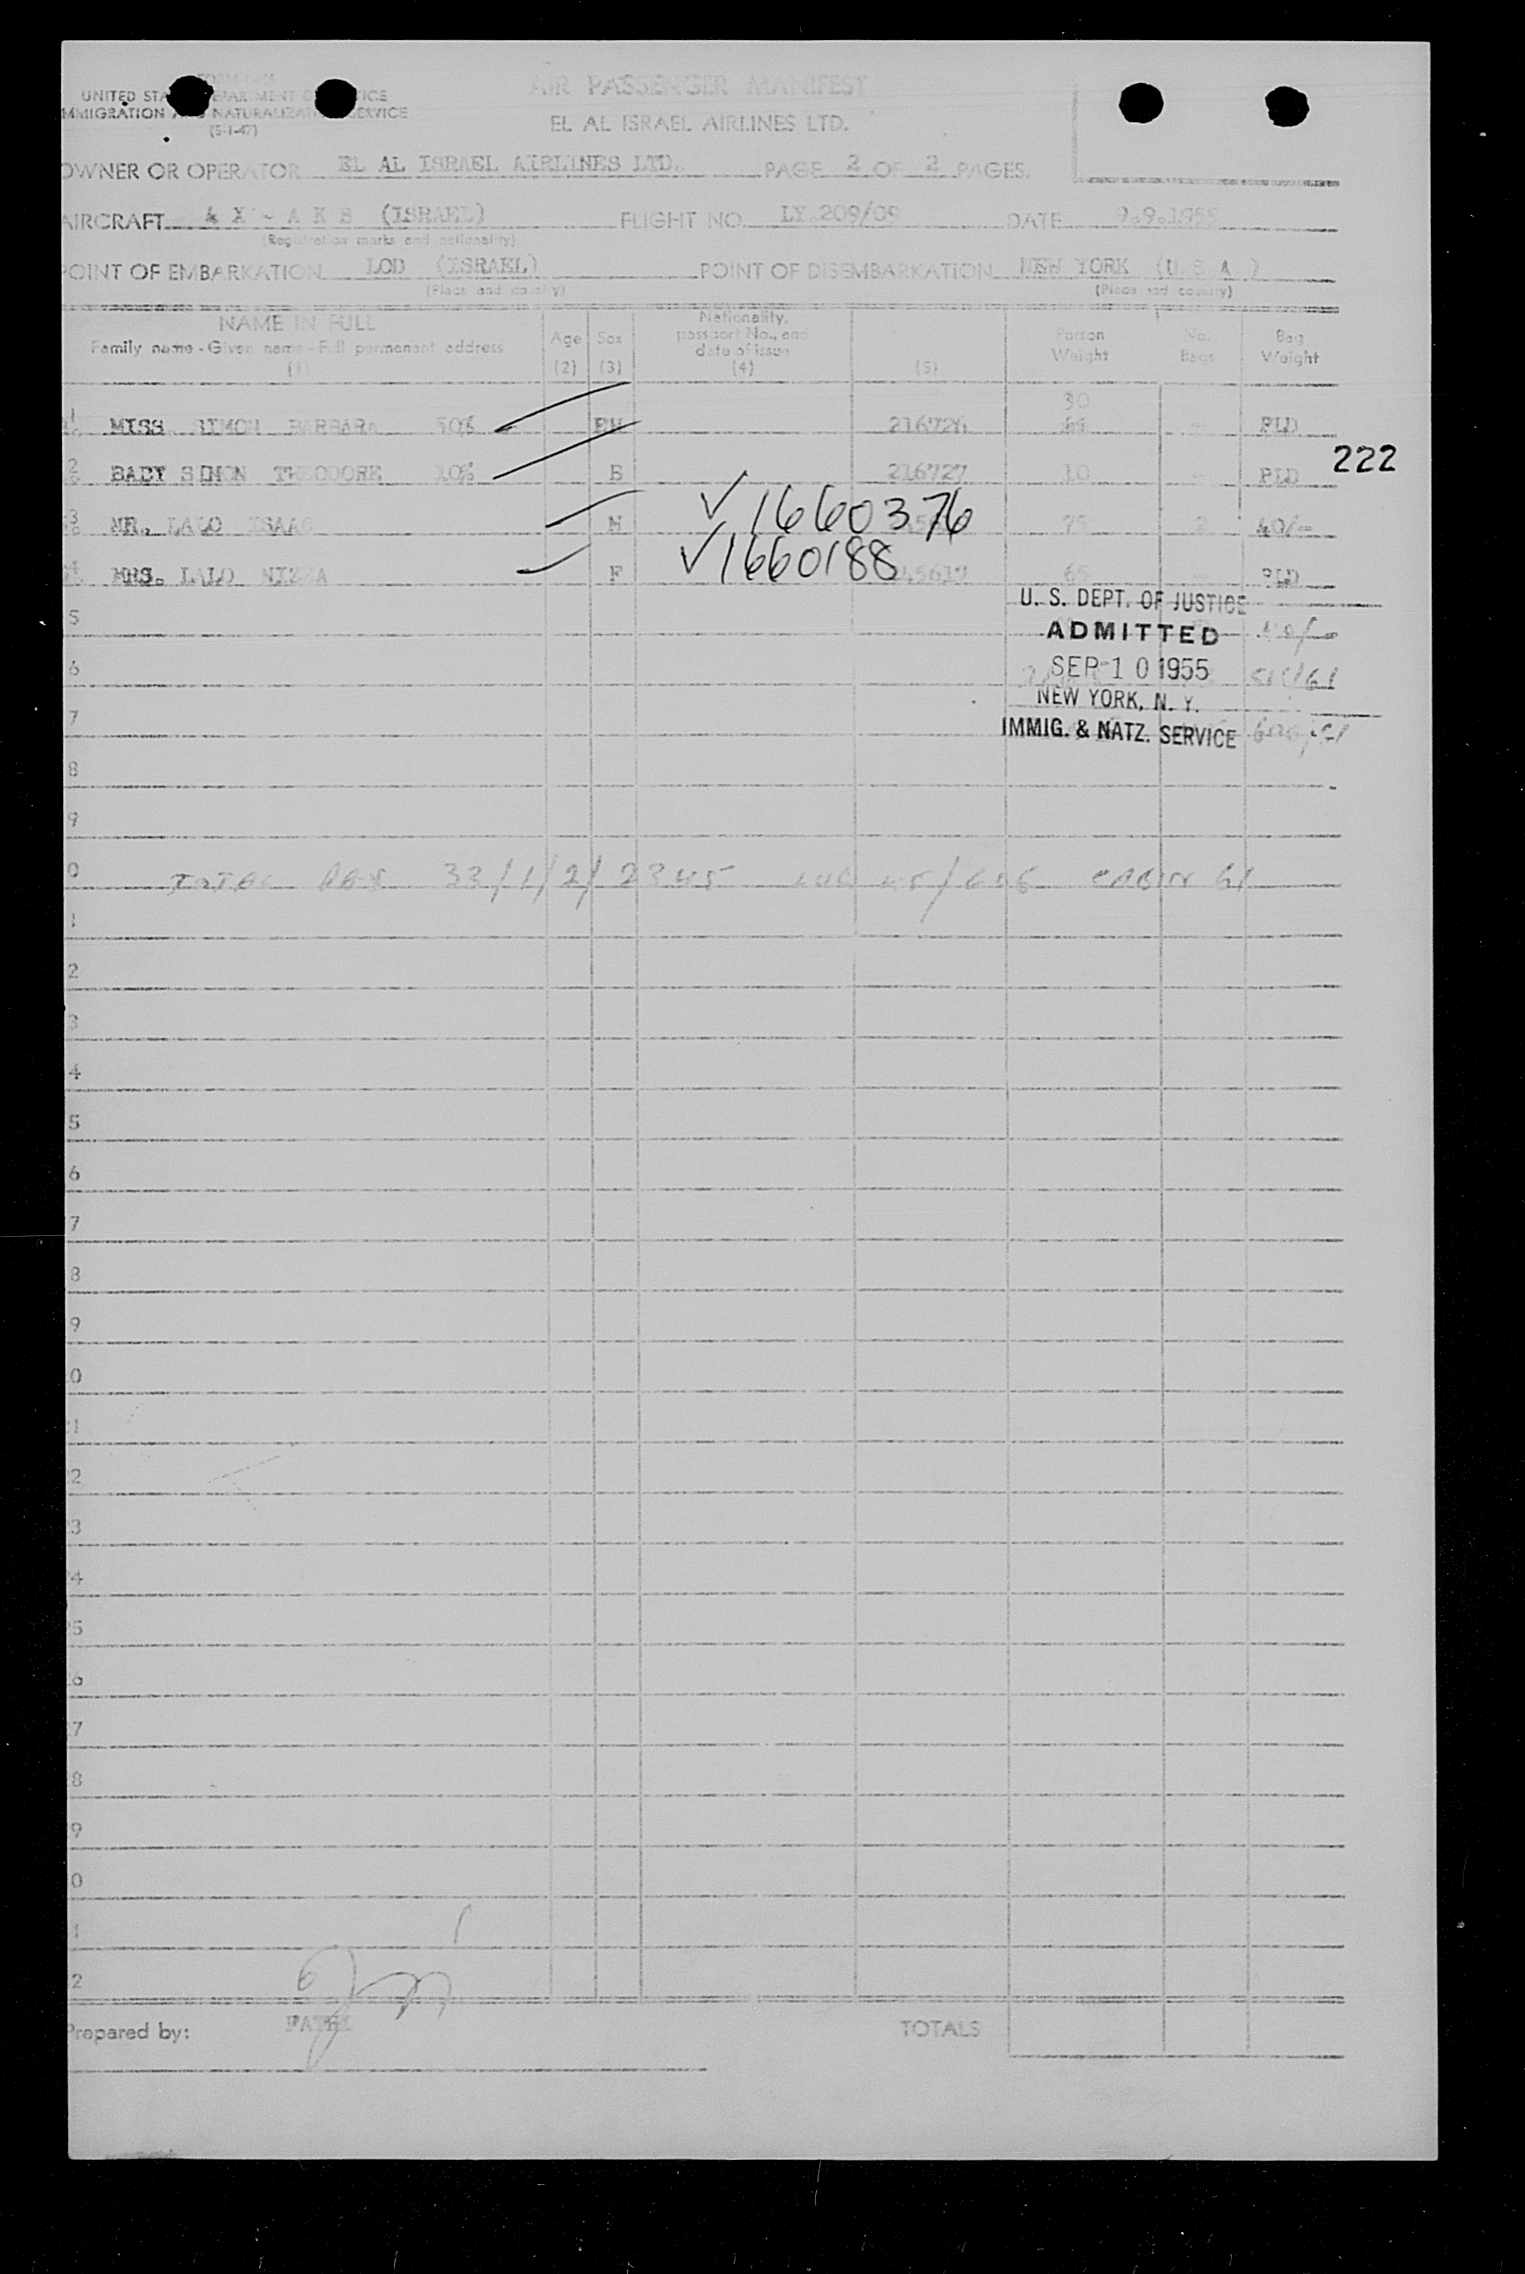 UNITED STA
IMMIGRATION NATURALIZATION SERVICE
(5-1-47)
AIR PASSENGER MANIFEST
EL AL ISRAEL AIRLINES LTD.
OWNER OR OPERATOR EL AL ISRAEL AIRLINES LTD. PAGE 2 OF 2 PAGES.
AIRCRAFT 4 X - A K B (ISRAEL) FLIGHT NO. LY.209/09 DATE 9.9.1955
(Registration marks and nationality)
POINT OF EMBARKATION LOD (ISRAEL) POINT OF DISEMBARKATION NEW YORK (U S A )
(Place and country) (Place and country)
NAME IN FULL
Family name - Given name - Full permanent address
(1)
Age
(2)
Sex
(3)
Nationality, passport No., and date of issue
(4)
(5)
Person Weight
No. Bags
Bag Weight
30
1 MISS SIMON BARBARA 50% 216726 PLD
222
2 BABY SIMON THEODORE 10% B 216727 10 - PLD
3 MR. LALO ISAAC M ✓1660376 75 2 40/-
4 MRS. LALO NIZZA F ✓1660188 45617 65 - PLD
U. S. DEPT. OF JUSTICE
5
ADMITTED
6
SEP 10 1955
NEW YORK, N. Y.
7
IMMIG. & NATZ. SERVICE
8
9
0 TOTAL PAX 33/1/2/ 2345 CABIN 61
1
2
3
4
5
6
7
8
9
0
1
2
3
4
5
6
7
8
9
0
1
2
Prepared by: TOTALS